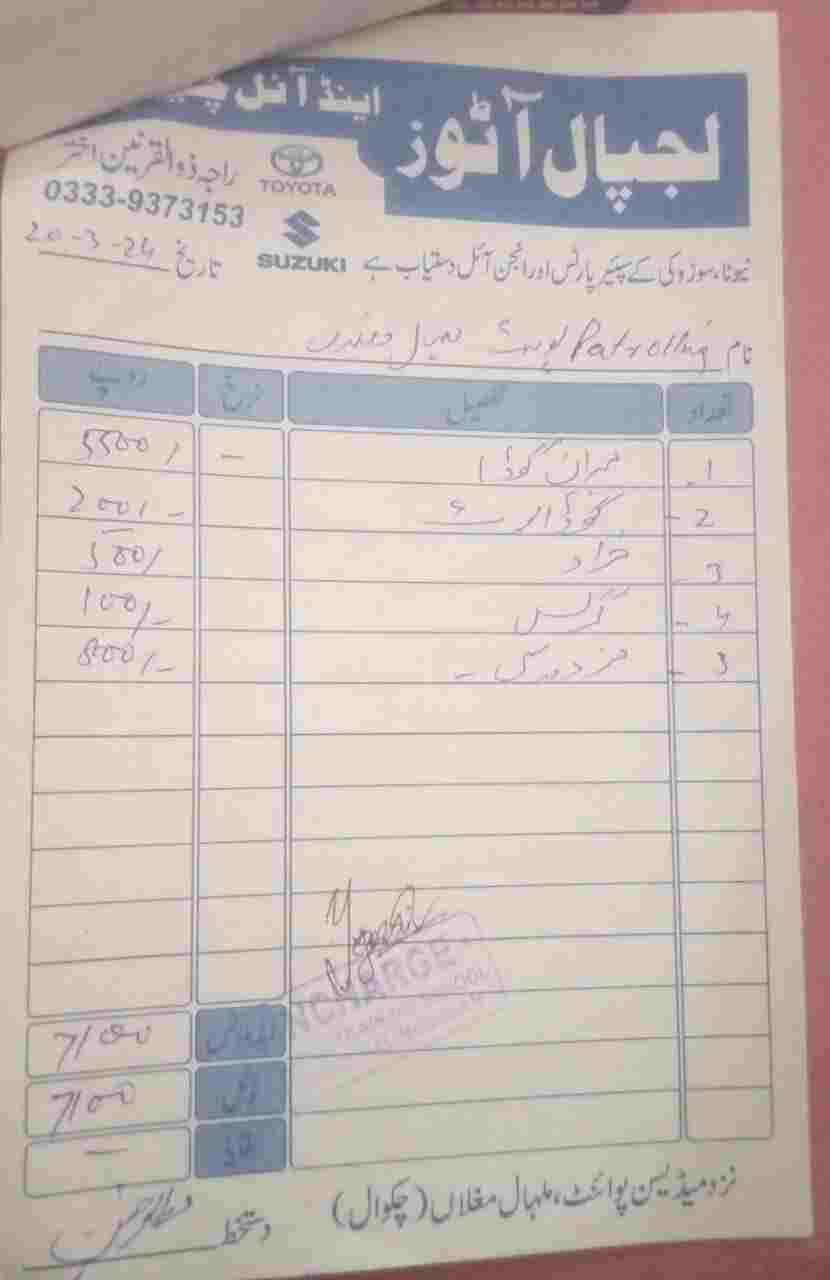 لجپال آٹوز اینڈ آئل
راجہ ذوالقرنین اختر
0333-9373153
TOYOTA
SUZUKI
ٹیوٹا، سوزوکی کے سپئیر پارٹس اور انجن آئل دستیاب ہے
تاریخ 20-3-24
نام Patrolling پوسٹ
تعداد تفصیل نرخ روپے
1 مہران گوڈا - 5500/
2- 200/-
3 خراد 500/
4- گریس 100/-
3- مزدوری - 800/-
INCHARGE
7100
ٹوٹل 7100
بقایا -
نزد میڈیسن پوائنٹ، ملہال مغلاں (چکوال)
دستخط